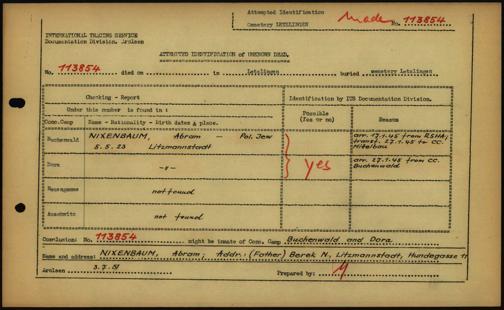 Attempted Identification
Cemetery LETZLINGEN
Made No. 113854
INTERNATIONAL TRACING SERVICE
Documentation Division, Arolsen
ATTEMPTED IDENTIFICATION of UNKNOWN DEAD.
No. 113854 died on in Letzlingen buried cemetery Letzlingen
Checking - Report
Identification by ITS Documentation Division.
Under this number is found in :
Possible (Yes or no)
Reason
Conc.Camp Name - Nationality - Birth dates & place.
Buchenwald NIXENBAUM, Abram - Pol. Jew
5.5.23 Litzmannstadt
arr. 17.1.45 from RSHA;
transf. 27.1.45 to CC.
Mittelbau
Dora -"- yes
arr. 27.1.45 from CC.
Buchenwald
Neuengamme not found
Auschwitz not found
Conclusion: No. 113854 might be inmate of Conc. Camp Buchenwald and Dora.
Name and address: NIXENBAUM, Abram; Addr: (Father) Berek N., Litzmannstadt, Hundegasse 11
Arolsen 3.7.51 Prepared by: